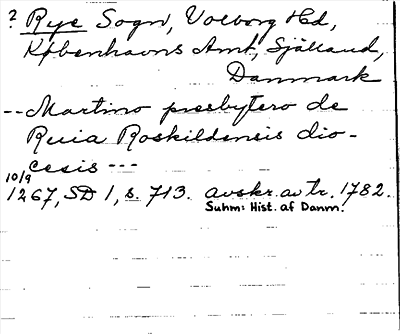 ? Rye Sogn, Volborg Hd,
Københavns Amt, Själland,
Danmark
-- Martino presbytero de
Ruia Roskildensis dio-
cesis ---
10/9
1267, SD 1, s. 713. avskr. av tr. 1782.
Suhm: Hist. af Danm.